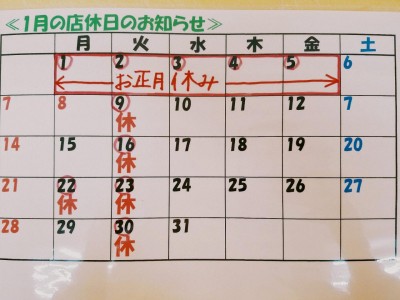 ≪1月の店休日のお知らせ≫
月 火 水 木 金 土
1 2 3 4 5 6
お正月休み
7 8 9 10 11 12 7
休
14 15 16 17 18 19 20
休
21 22 23 24 25 26 27
休 休
28 29 30 31
休